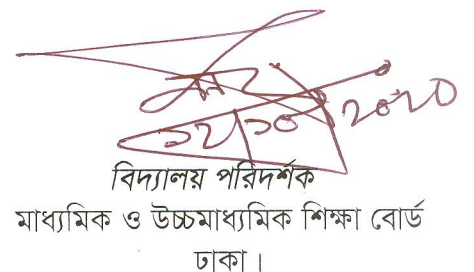 ১২/১০/২০২০
বিদ্যালয় পরিদর্শক
মাধ্যমিক ও উচ্চমাধ্যমিক শিক্ষা বোর্ড
ঢাকা।